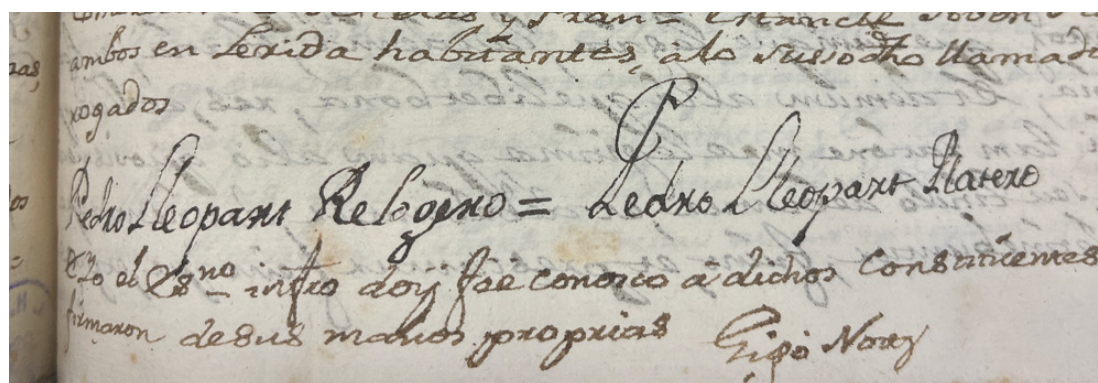 ambos en Lerida habitantes, a lo sussodho llamad
rogados
Pedro Lleopart Relogero = Pedro Lleopart Platero
Eyo el Esno infro doy fee conosco a dichos constituentes
firmaron de sus manos proprias Gigó Noty